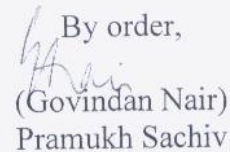 By order,
(Govindan Nair)
Pramukh Sachiv